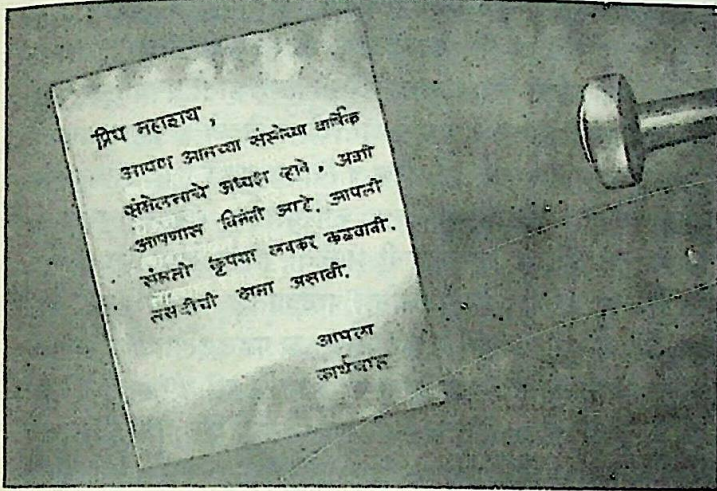 प्रिय महाशय,
आपण आमच्या संस्थेच्या वार्षिक
संमेलनाचे अध्यक्ष व्हावे, अशी
आपणास विनंती आहे. आपली
संमती कृपया लवकर कळवावी.
तसदीची क्षमा असावी.
आपला
कार्यवाह